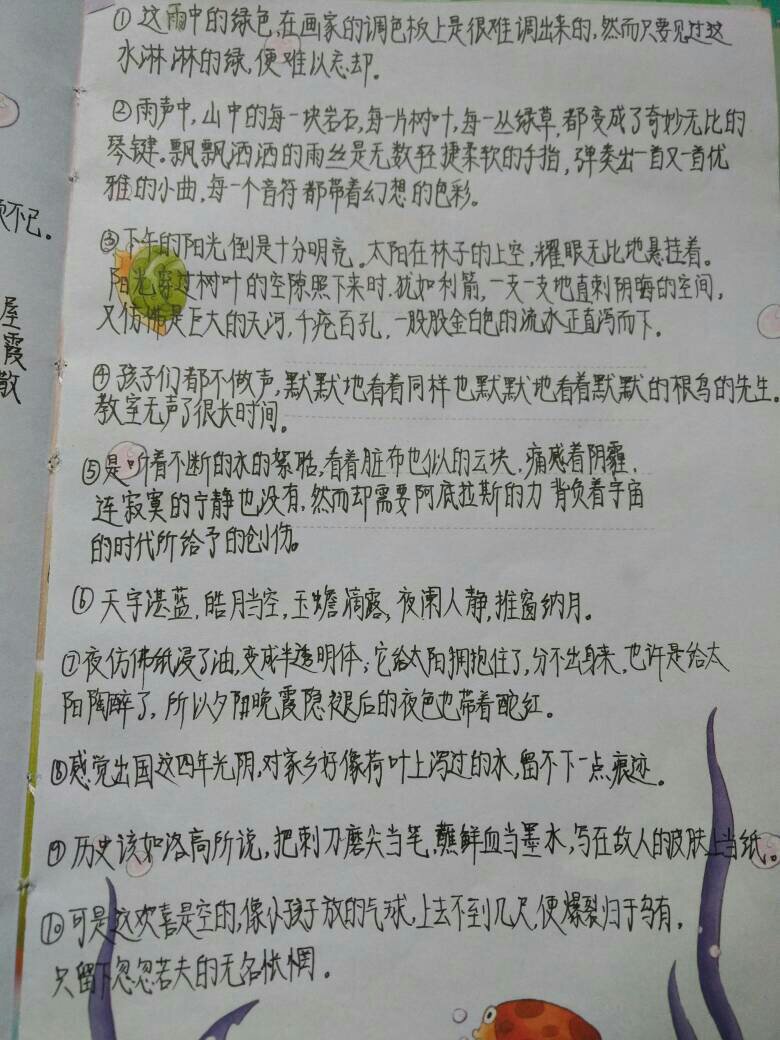 ①这雨中的绿色,在画家的调色板上是很难调出来的,然而只要见过这
水淋淋的绿,便难以忘却.
②雨声中,山中的每一块岩石,每一片树叶,每一丛绿草,都变成了奇妙无比的
琴键.飘飘洒洒的雨丝是无数轻捷柔软的手指,弹奏出一首又一首优
雅的小曲,每一个音符都带着幻想的色彩.
不已。
③下午的阳光倒是十分明亮。太阳在林子的上空,耀眼无比地悬挂着。
阳光穿过树叶的空隙照下来时.犹如利箭,一支一支地直刺阴晦的空间,
屋
又仿佛是巨大的天河,千疮百孔,一股股金白色的流水正直泻而下.
霞
④孩子们都不做声,默默地看着同样也默默地看着默默的根鸟的先生。
散
教室无声了很长时间。
⑤是听着不断的水的絮聒,看着脏布也似的云块,痛感着阴霾,
连寂寞的宁静也没有,然而却需要阿底拉斯的力 背负着宇宙
的时代所给予的创伤。
⑥天宇湛蓝,皓月当空,玉蟾滴露,夜阑人静,推窗纳月。
⑦夜仿佛纸浸了油,变成半透明体;它给太阳拥抱住了,分不出身来,也许是给太
阳陶醉了,所以夕阳晚霞隐褪后的夜色也带着酡红。
⑧感觉出国这四年光阴,对家乡好像荷叶上泻过的水,留不下一点痕迹。
⑨历史该如洛高所说,把刺刀磨尖当笔,蘸鲜血当墨水,写在敌人的皮肤上当纸。
⑩可是这欢喜是空的,像小孩子放的气球,上去不到几尺,便爆裂归于乌有,
只留下忽忽若失的无名怅惘。